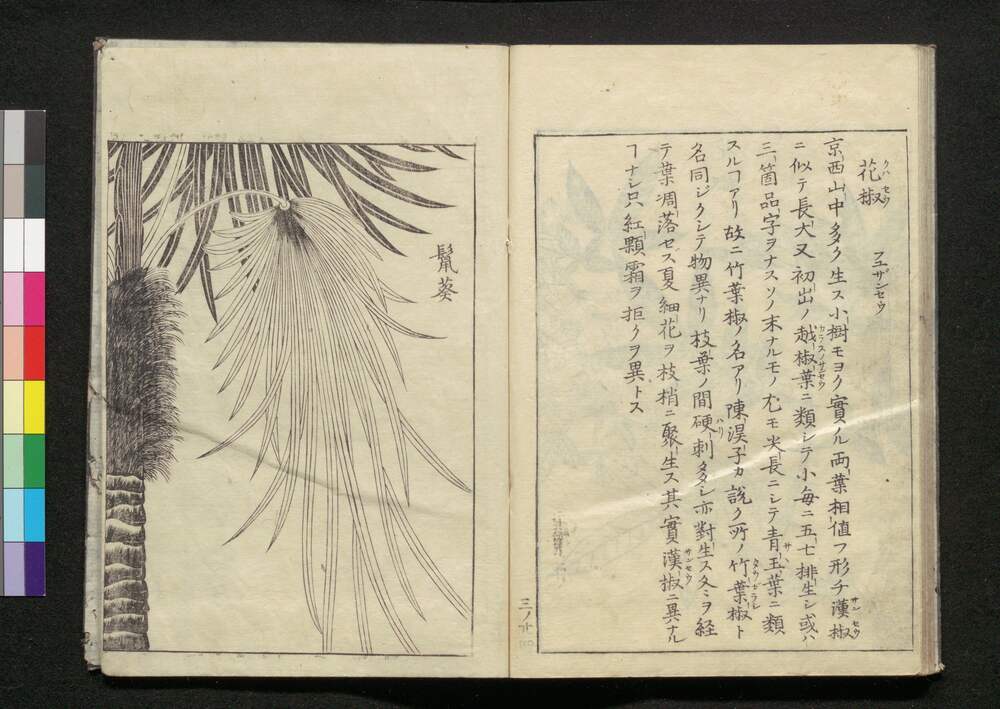 花椒
クハセウ
フユザンセウ
京西山中多ク生ス小樹モヨク實ノル両葉相値フ形チ漢椒
サンセウ
ニ似テ長大又初出ノ越椒葉ニ類シテ小毎ニ五七排生シ或ハ
三箇品字ヲナスソノ末ナルモノ尤モ尖長ニシテ青玉葉ニ類
スルヿアリ故ニ竹葉椒ノ名アリ陳淏子カ説ク所ノ竹葉椒ト
名同ジクシテ物異ナリ枝葉ノ間硬刺多シ亦對生ス冬ヲ経
ハリ
テ葉凋落セス夏細花ヲ枝梢ニ聚生ス其實漢椒ニ異ナル
サンセウ
ヿナシ只紅顆霜ヲ拒クヲ異トス
三ノ
鬣葵